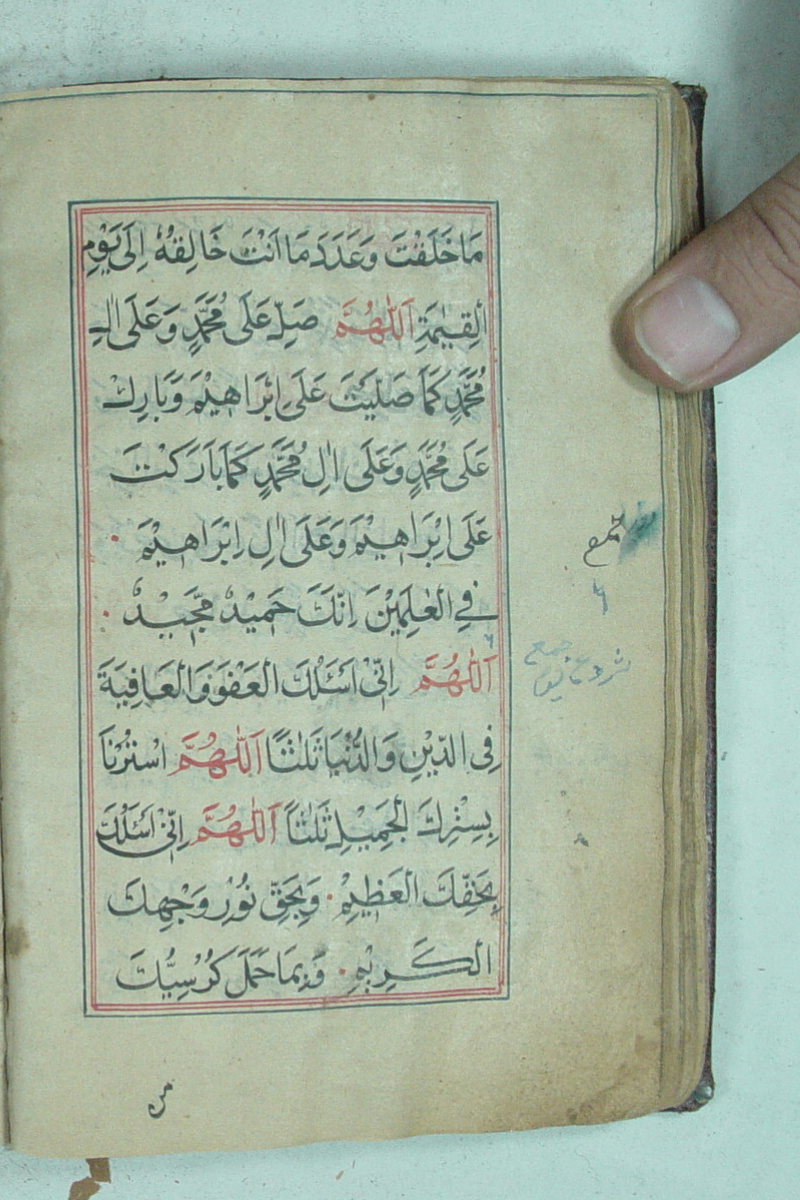 مَا خَلَقْتَ وَعَدَدَ مَا اَنْتَ خَالِقُهُ اِلَى يَوْمِ
الْقِيٰمَةِ اَللّٰهُمَّ صَلِّ عَلَى مُحَمَّدٍ وَعَلَى اٰلِ
مُحَمَّدٍ كَمَا صَلَّيْتَ عَلَى اِبْرَاهِيْمَ وَبَارِكْ
عَلَى مُحَمَّدٍ وَعَلَى اٰلِ مُحَمَّدٍ كَمَا بَارَكْتَ
عَلَى اِبْرَاهِيْمَ وَعَلَى اٰلِ اِبْرَاهِيْمَ
فِي الْعٰلَمِيْنَ اِنَّكَ حَمِيْدٌ مَّجِيْدٌ
اَللّٰهُمَّ اِنِّىْ اَسْئَلُكَ الْعَفْوَ وَالْعَافِيَةَ
فِى الدِّيْنِ وَالدُّنْيَا ثَلٰثًا اَللّٰهُمَّ اسْتُرْنَا
بِسِتْرِكَ الْجَمِيْلِ ثَلٰثًا اَللّٰهُمَّ اِنِّىْ اَسْئَلُكَ
بِحَقِّكَ الْعَظِيْمِ وَبِحَقِّ نُوْرِ وَجْهِكَ
الْكَرِيْمِ وَبِمَا حَمَلَ كُرْسِيُّكَ
من
جمع
٦